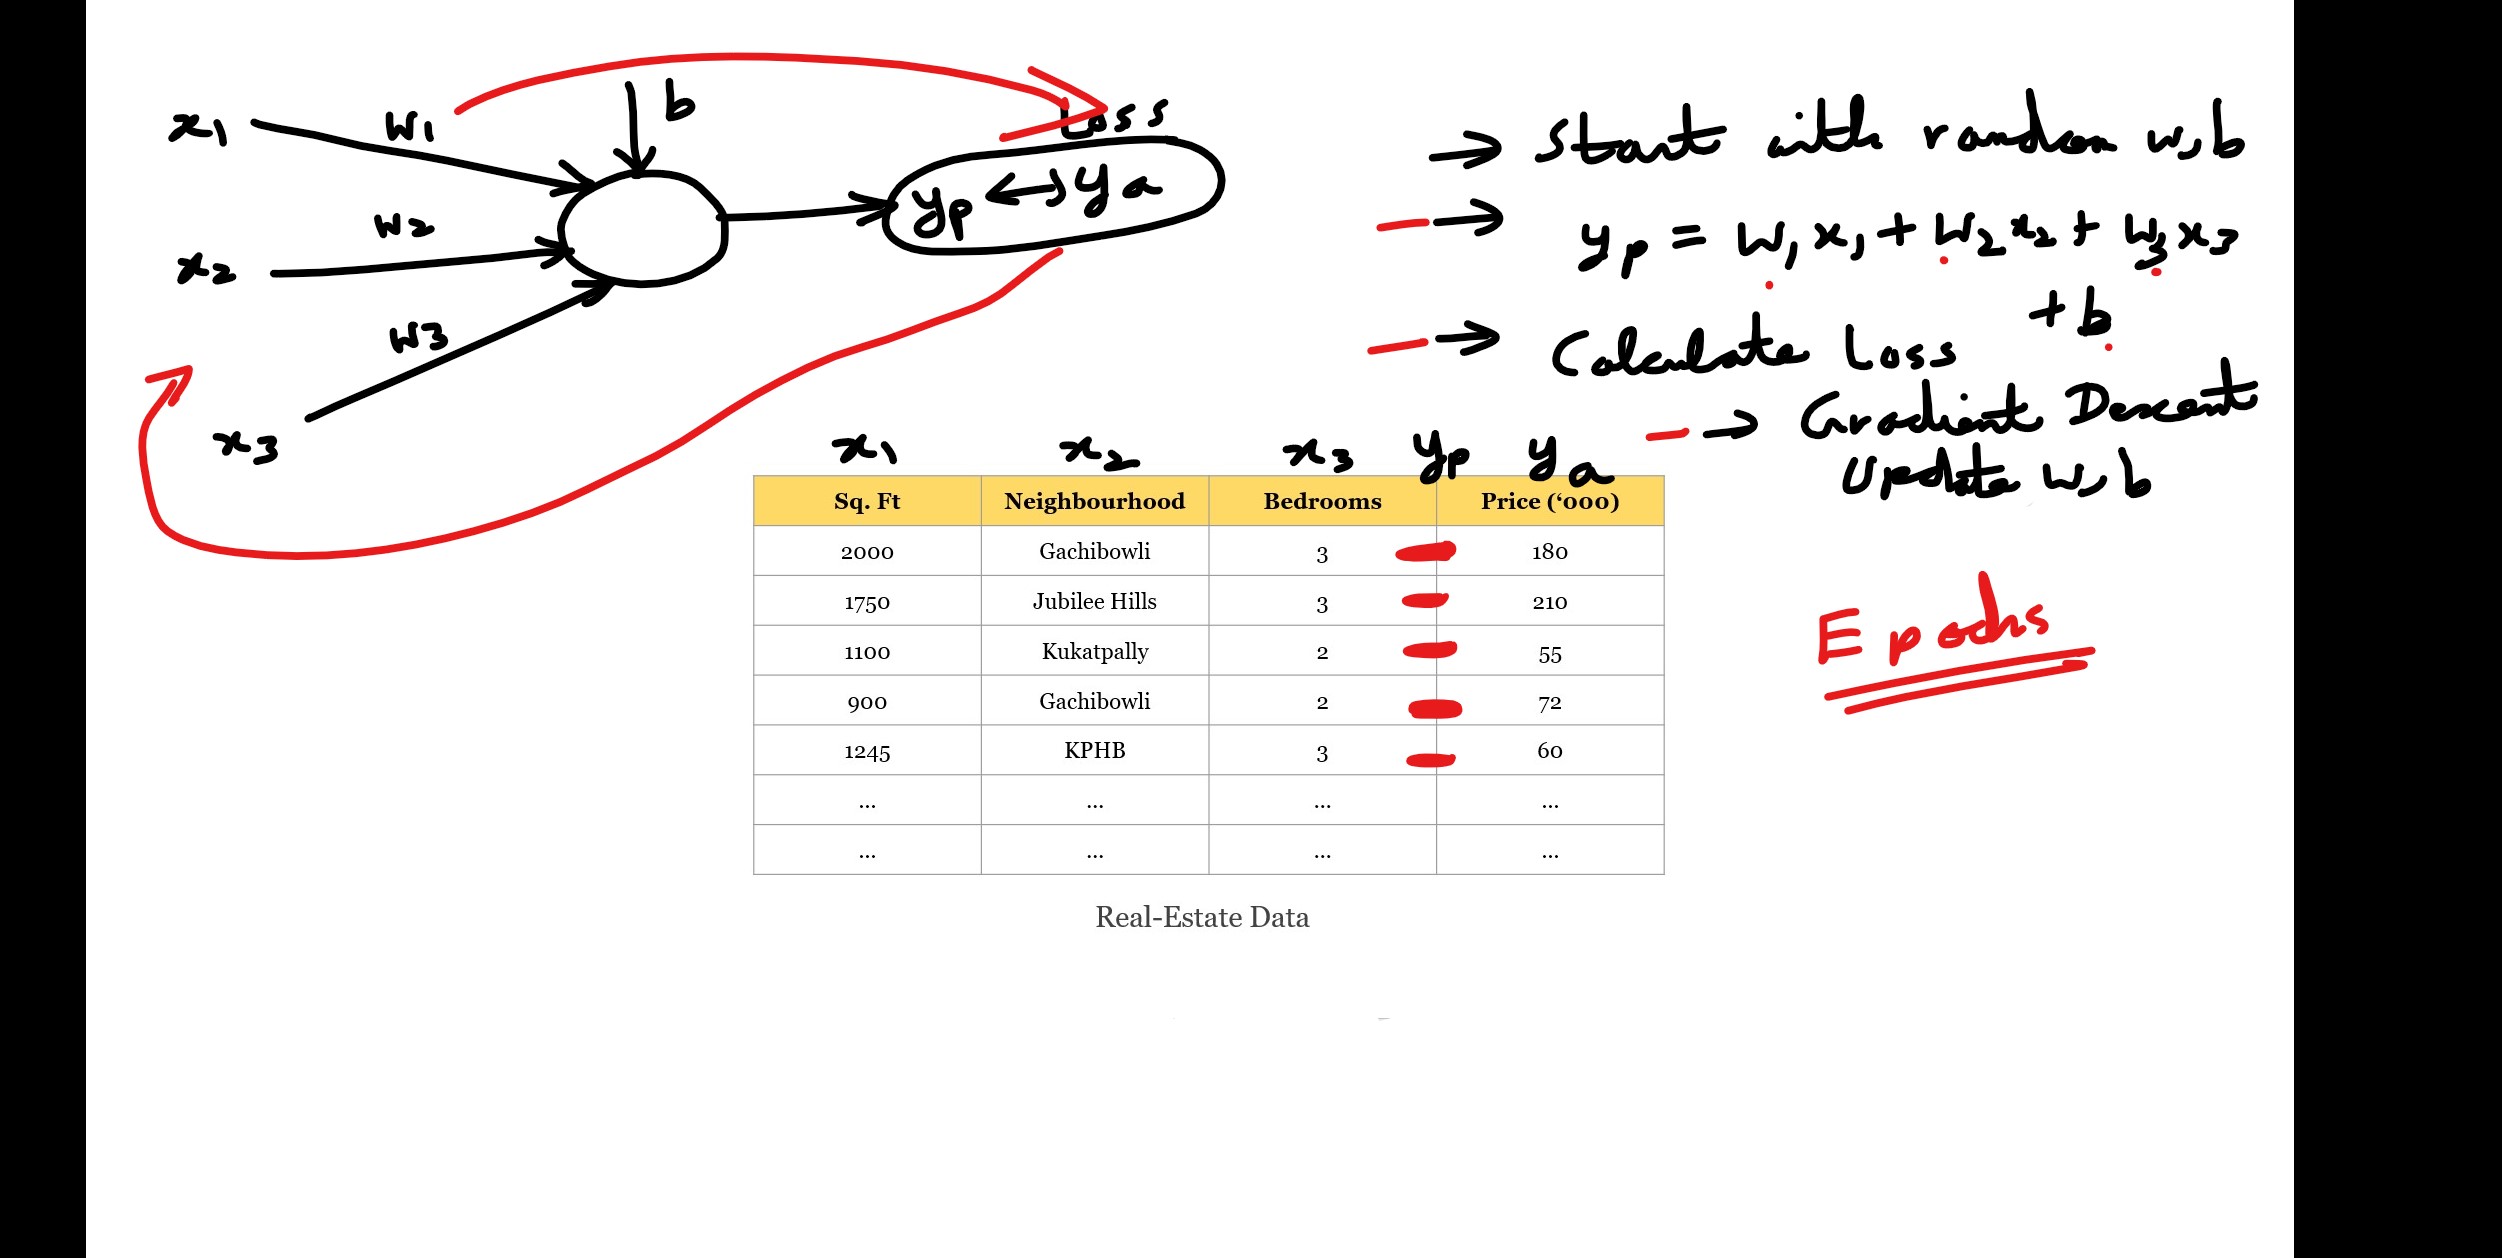 x1 w1 b Loss
w2 yp ↔ ya
x2
w3
x3
→ Start with random w,b
→ yp = w1x1 + w2x2 + w3x3
+ b
→ Calculate Loss
→ Gradient Descent
Update w,b
Epochs
x1 x2 x3 yp ya
Sq. Ft Neighbourhood Bedrooms Price (‘000)
2000 Gachibowli 3 180
1750 Jubilee Hills 3 210
1100 Kukatpally 2 55
900 Gachibowli 2 72
1245 KPHB 3 60
... ... ... ...
... ... ... ...
Real-Estate Data